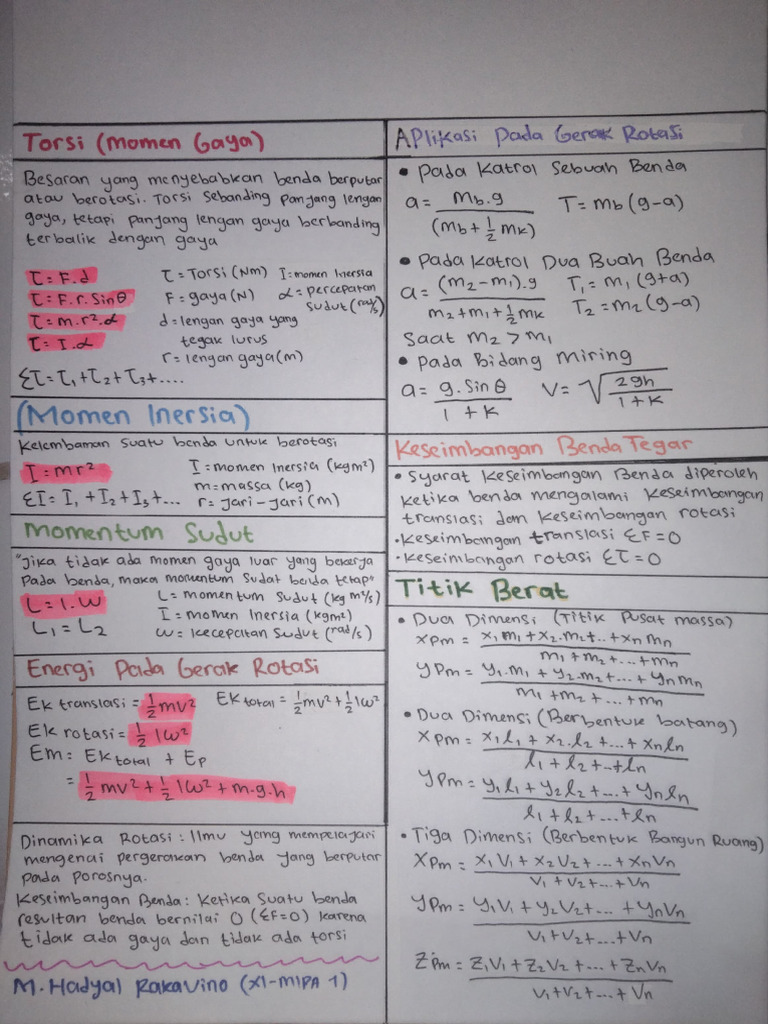 Torsi (Momen Gaya)
Besaran yang menyebabkan benda berputar
atau berotasi. Torsi sebanding panjang lengan
gaya, tetapi panjang lengan gaya berbanding
terbalik dengan gaya
τ = F.d
τ = F.r.Sinθ
τ = m.r².α
τ = I.α
τ = Torsi (Nm)
F = gaya (N)
d = lengan gaya yang
tegak lurus
r = lengan gaya (m)
I = momen Inersia
α = percepatan
sudut (rad/s)
Στ = τ₁ + τ₂ + τ₃ + ....
(Momen Inersia)
Kelembaman suatu benda untuk berotasi
I = mr²
ΣI = I₁ + I₂ + I₃ + ...
I = momen Inersia (kgm²)
m = massa (kg)
r = jari-jari (m)
Momentum Sudut
"Jika tidak ada momen gaya luar yang bekerja
Pada benda, maka momentum Sudat benda tetap"
L = I.ω
L₁ = L₂
L = momentum Sudut (kg m²/s)
I = momen Inersia (kgm²)
ω = kecepatan Sudut (rad/s)
Energi Pada Gerak Rotasi
Ek translasi = ½mv²
Ek total = ½mv² + ½Iω²
Ek rotasi = ½Iω²
Em = Ek total + Ep
= ½mv² + ½Iω² + m.g.h
Dinamika Rotasi : Ilmu yang mempelajari
mengenai pergerakan benda yang berputar
pada porosnya.
Keseimbangan Benda : Ketika Suatu benda
resultan benda bernilai 0 (ΣF=0) karena
tidak ada gaya dan tidak ada torsi
M. Hadyal RakaVino (XI-MIPA 1)
Aplikasi Pada Gerak Rotasi
• Pada Katrol Sebuah Benda
a = mb.g / (mb + ½mk)
T = mb(g-a)
• Pada Katrol Dua Buah Benda
a = (m₂-m₁).g / m₂+m₁+½mk
T₁ = m₁(g+a)
T₂ = m₂(g-a)
Saat m₂ > m₁
• Pada Bidang Miring
a = g.Sinθ / 1+K
V = √(2gh / 1+K)
Keseimbangan Benda Tegar
• Syarat Keseimbangan Benda diperoleh
ketika benda mengalami Keseimbangan
translasi dan keseimbangan rotasi
• Keseimbangan translasi ΣF = 0
• Keseimbangan rotasi Στ = 0
Titik Berat
• Dua Dimensi (Titik Pusat massa)
XPm = x₁m₁ + x₂.m₂ + .. + xnmn / m₁ + m₂ + ... + mn
yPm = y₁.m₁ + y₂.m₂ + ... + ynmn / m₁ + m₂ + ... + mn
• Dua Dimensi (Berbentuk batang)
XPm = x₁l₁ + x₂.l₂ + ... + xnln / l₁ + l₂ + .. + ln
yPm = y₁l₁ + y₂l₂ + ... + ynln / l₁ + l₂ + ... + ln
• Tiga Dimensi (Berbentuk Bangun Ruang)
XPm = x₁V₁ + x₂V₂ + ... + XnVn / V₁ + V₂ + ... + Vn
yPm = y₁V₁ + y₂V₂ + ... + ynVn / V₁ + V₂ + ... + Vn
ZPm = Z₁V₁ + Z₂V₂ + ... + ZnVn / V₁ + V₂ + ... + Vn